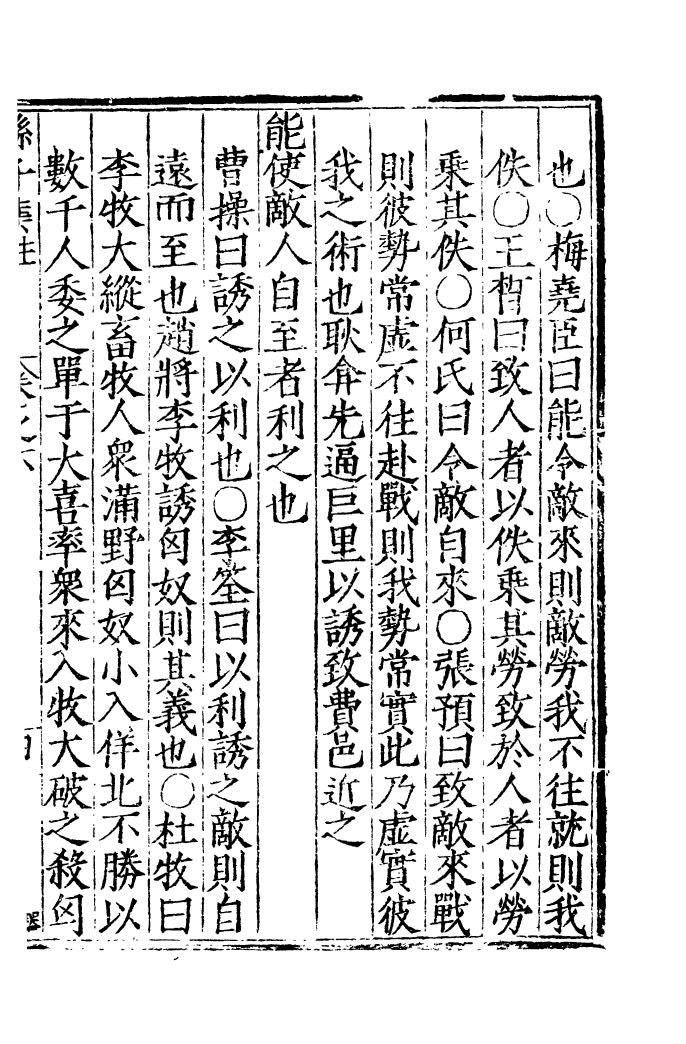 也○梅堯臣曰能令敵來則敵勞我不往就則我
佚○王晳曰致人者以佚乘其勞致於人者以勞
乘其佚○何氏曰令敵自來○張預曰致敵來戰
則彼勢常虛不往赴戰則我勢常實此乃虛實彼
我之術也耿弇先逼巨里以誘致費邑近之
能使敵人自至者利之也
曹操曰誘之以利也○李筌曰以利誘之敵則自
遠而至也趙將李牧誘匈奴則其義也○杜牧曰
李牧大縱畜牧人眾滿野匈奴小入佯北不勝以
數千人委之單于大喜率眾來入牧大破之殺匈
孫子集註 卷之六